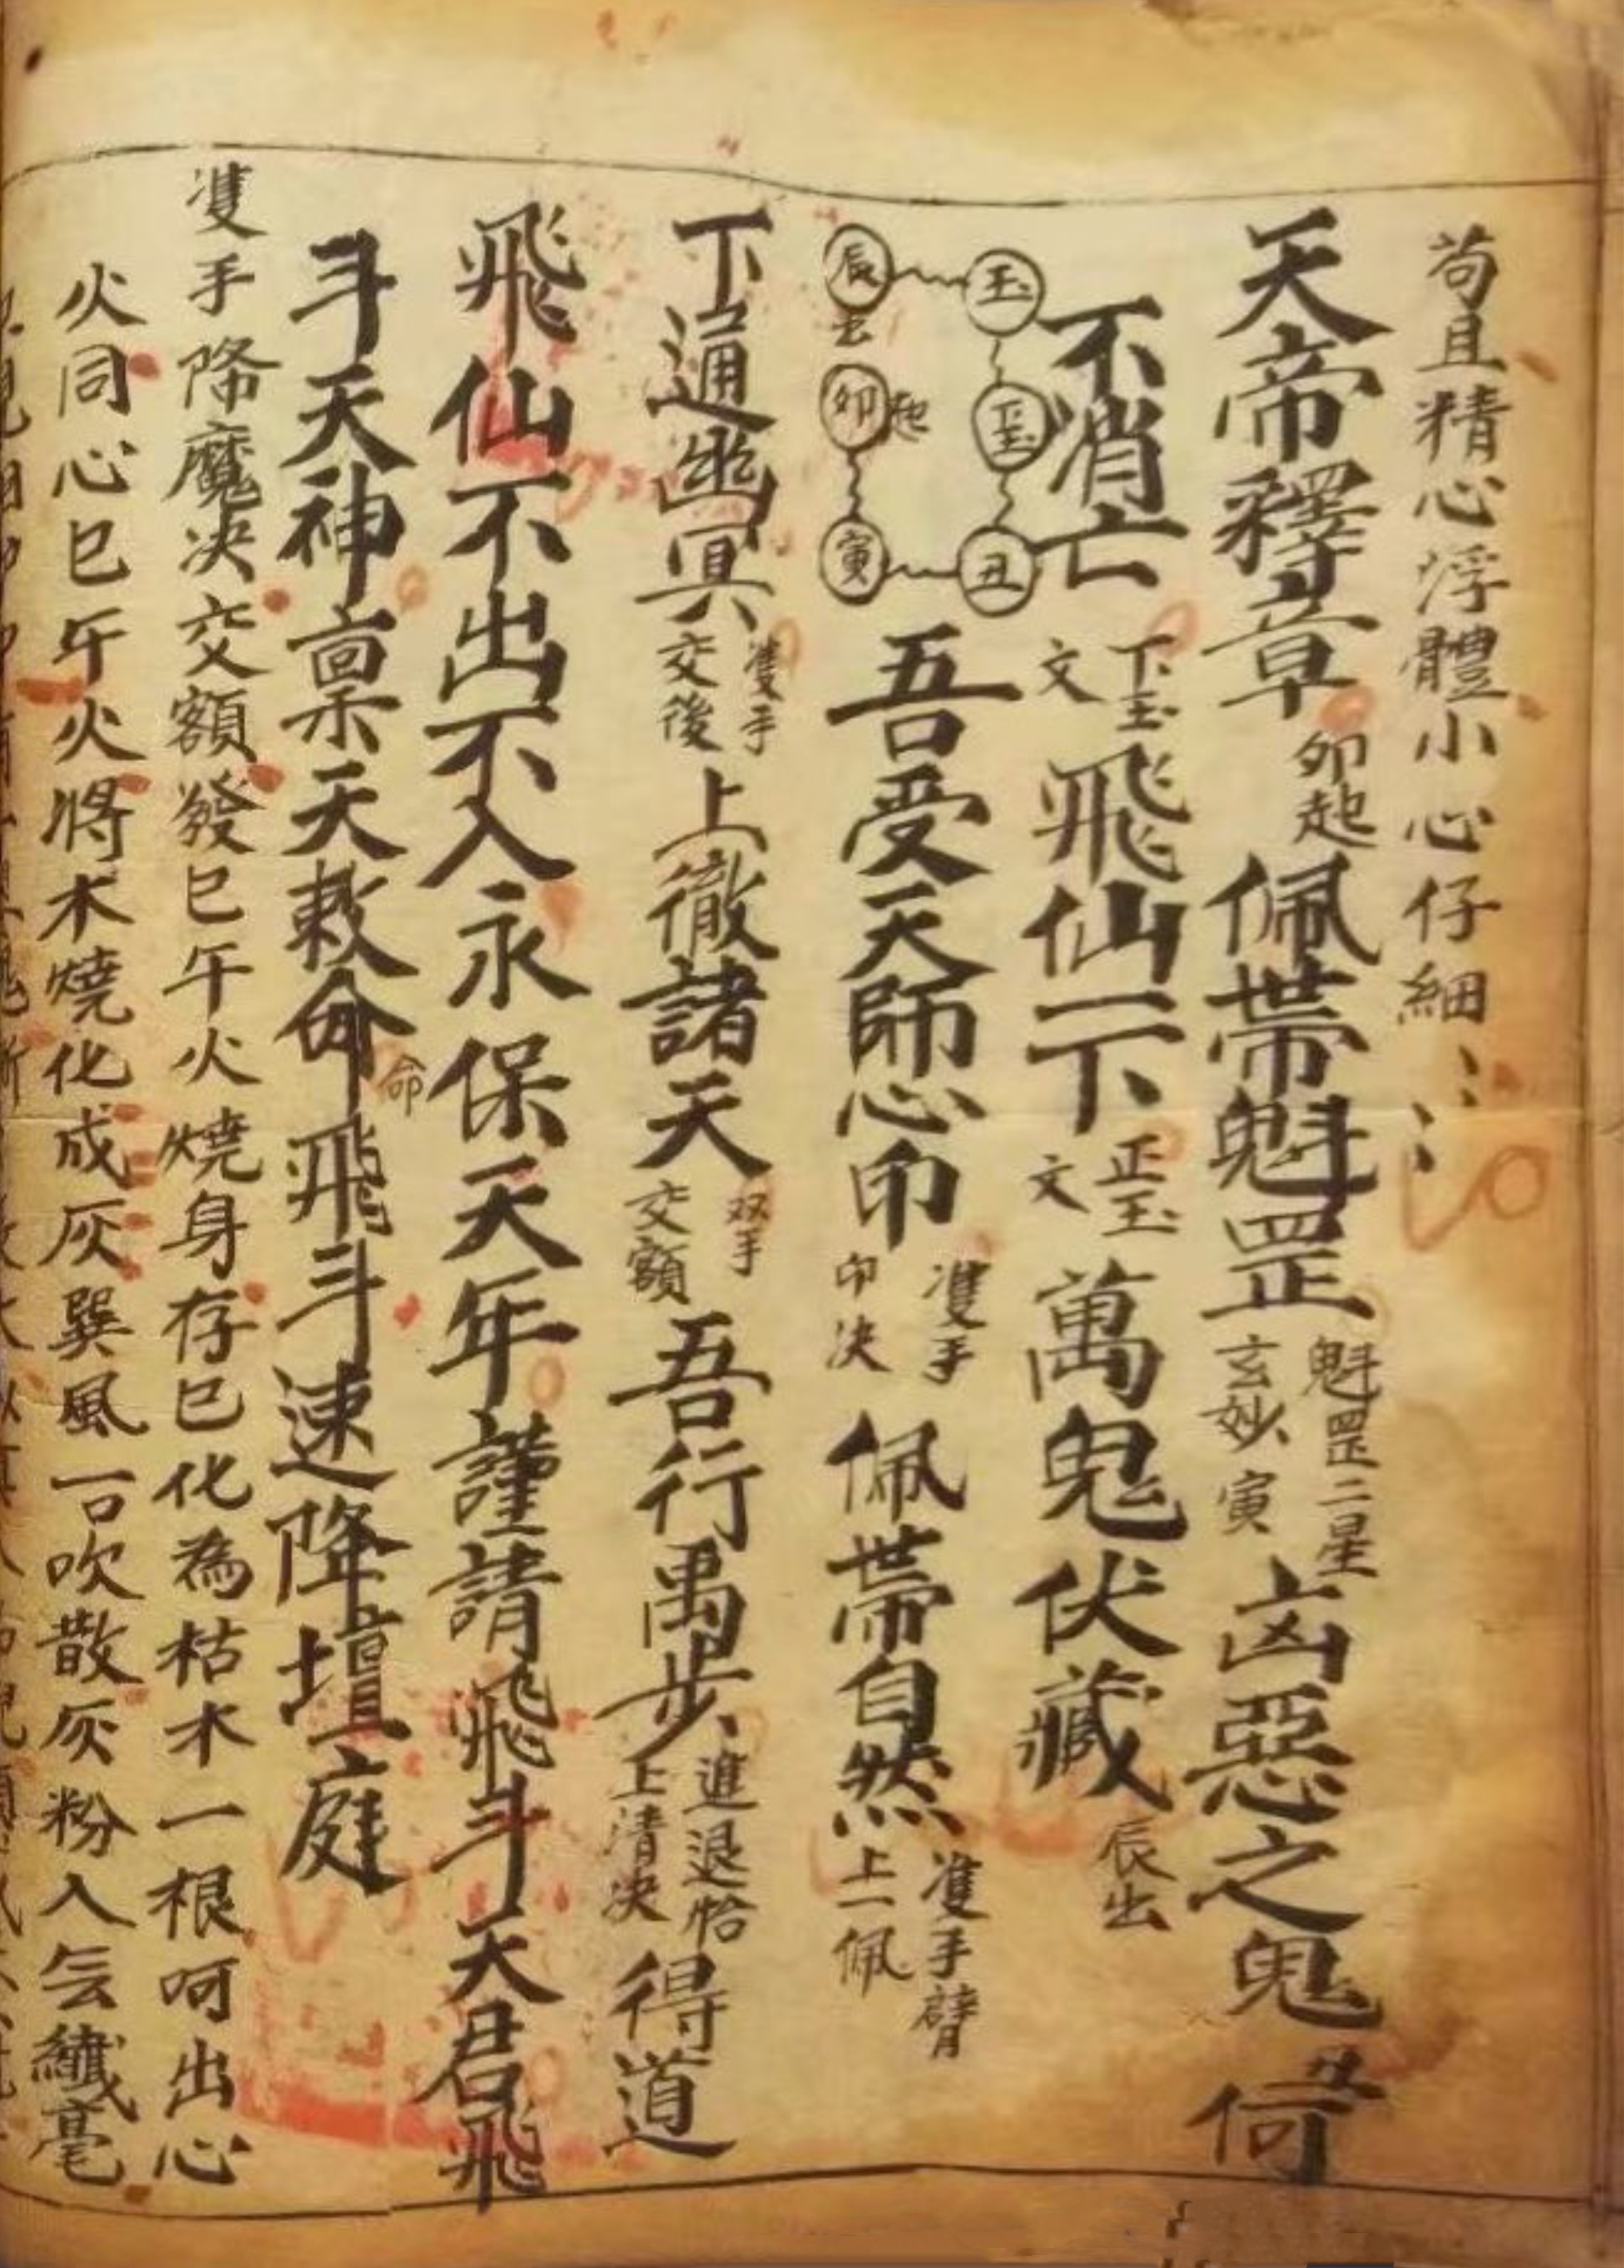 苟且精心浮體小心仔細
天帝釋章卯起佩帶魁罡魁罡二星玄妙寅凶惡之鬼丑何
不消亡下玉文飛仙一下正玉文萬鬼伏藏辰出
玉
正玉
丑
辰
去
卯
起
寅
吾受天師心印雙手印决佩帶自然雙手臂上一佩
下通幽冥雙手交後上徹諸天双手交額吾行禹步進退恰上清决得道
飛仙不出不入永保天年謹請飛斗天君飛
斗天神禀天敕命命飛斗速降壇庭
雙手降魔决交額發巳午火燒身存巳化為枯木一根呵出心
火同心巳午火將木燒化成灰巽風一口吹散灰粉入云纖毫